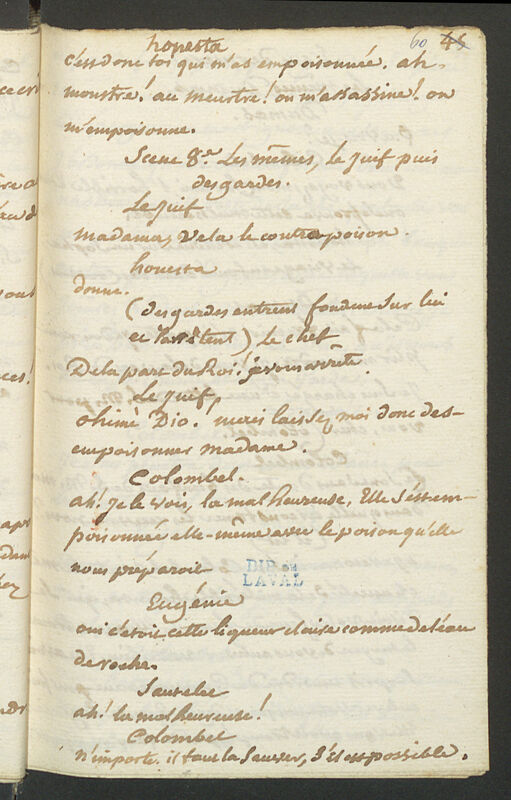 60 45
honesta
c'est donc toi qui m'as empoisonnée. ah.
monstre! au meurtre! on m'assassine! on
m'empoisonne.
Scene 8.e Les mêmes, le juif puis
des gardes.
Le juif
madama, vela le contrapoison.
honesta
donne.
(des gardes entrent fondent sur lui
et l'arrêtent) le chef
De la part du Roi! je vous arrête.
Le juif
ohimé Dio. mais laissez moi donc des-
empoisonner madame.
Colombel.
ah! je le vois, la malheureuse, Elle s'est em-
poisonnée elle-même avec le poison qu'elle
nous préparoit
DIB
LAVAL
Eugénie
oui c'étoit cette liqueur claire comme de l'eau
de roche.
Sautelet
ah! la malheureuse!
Colombel
n'importe. il faut la sauver, s'il est possible.